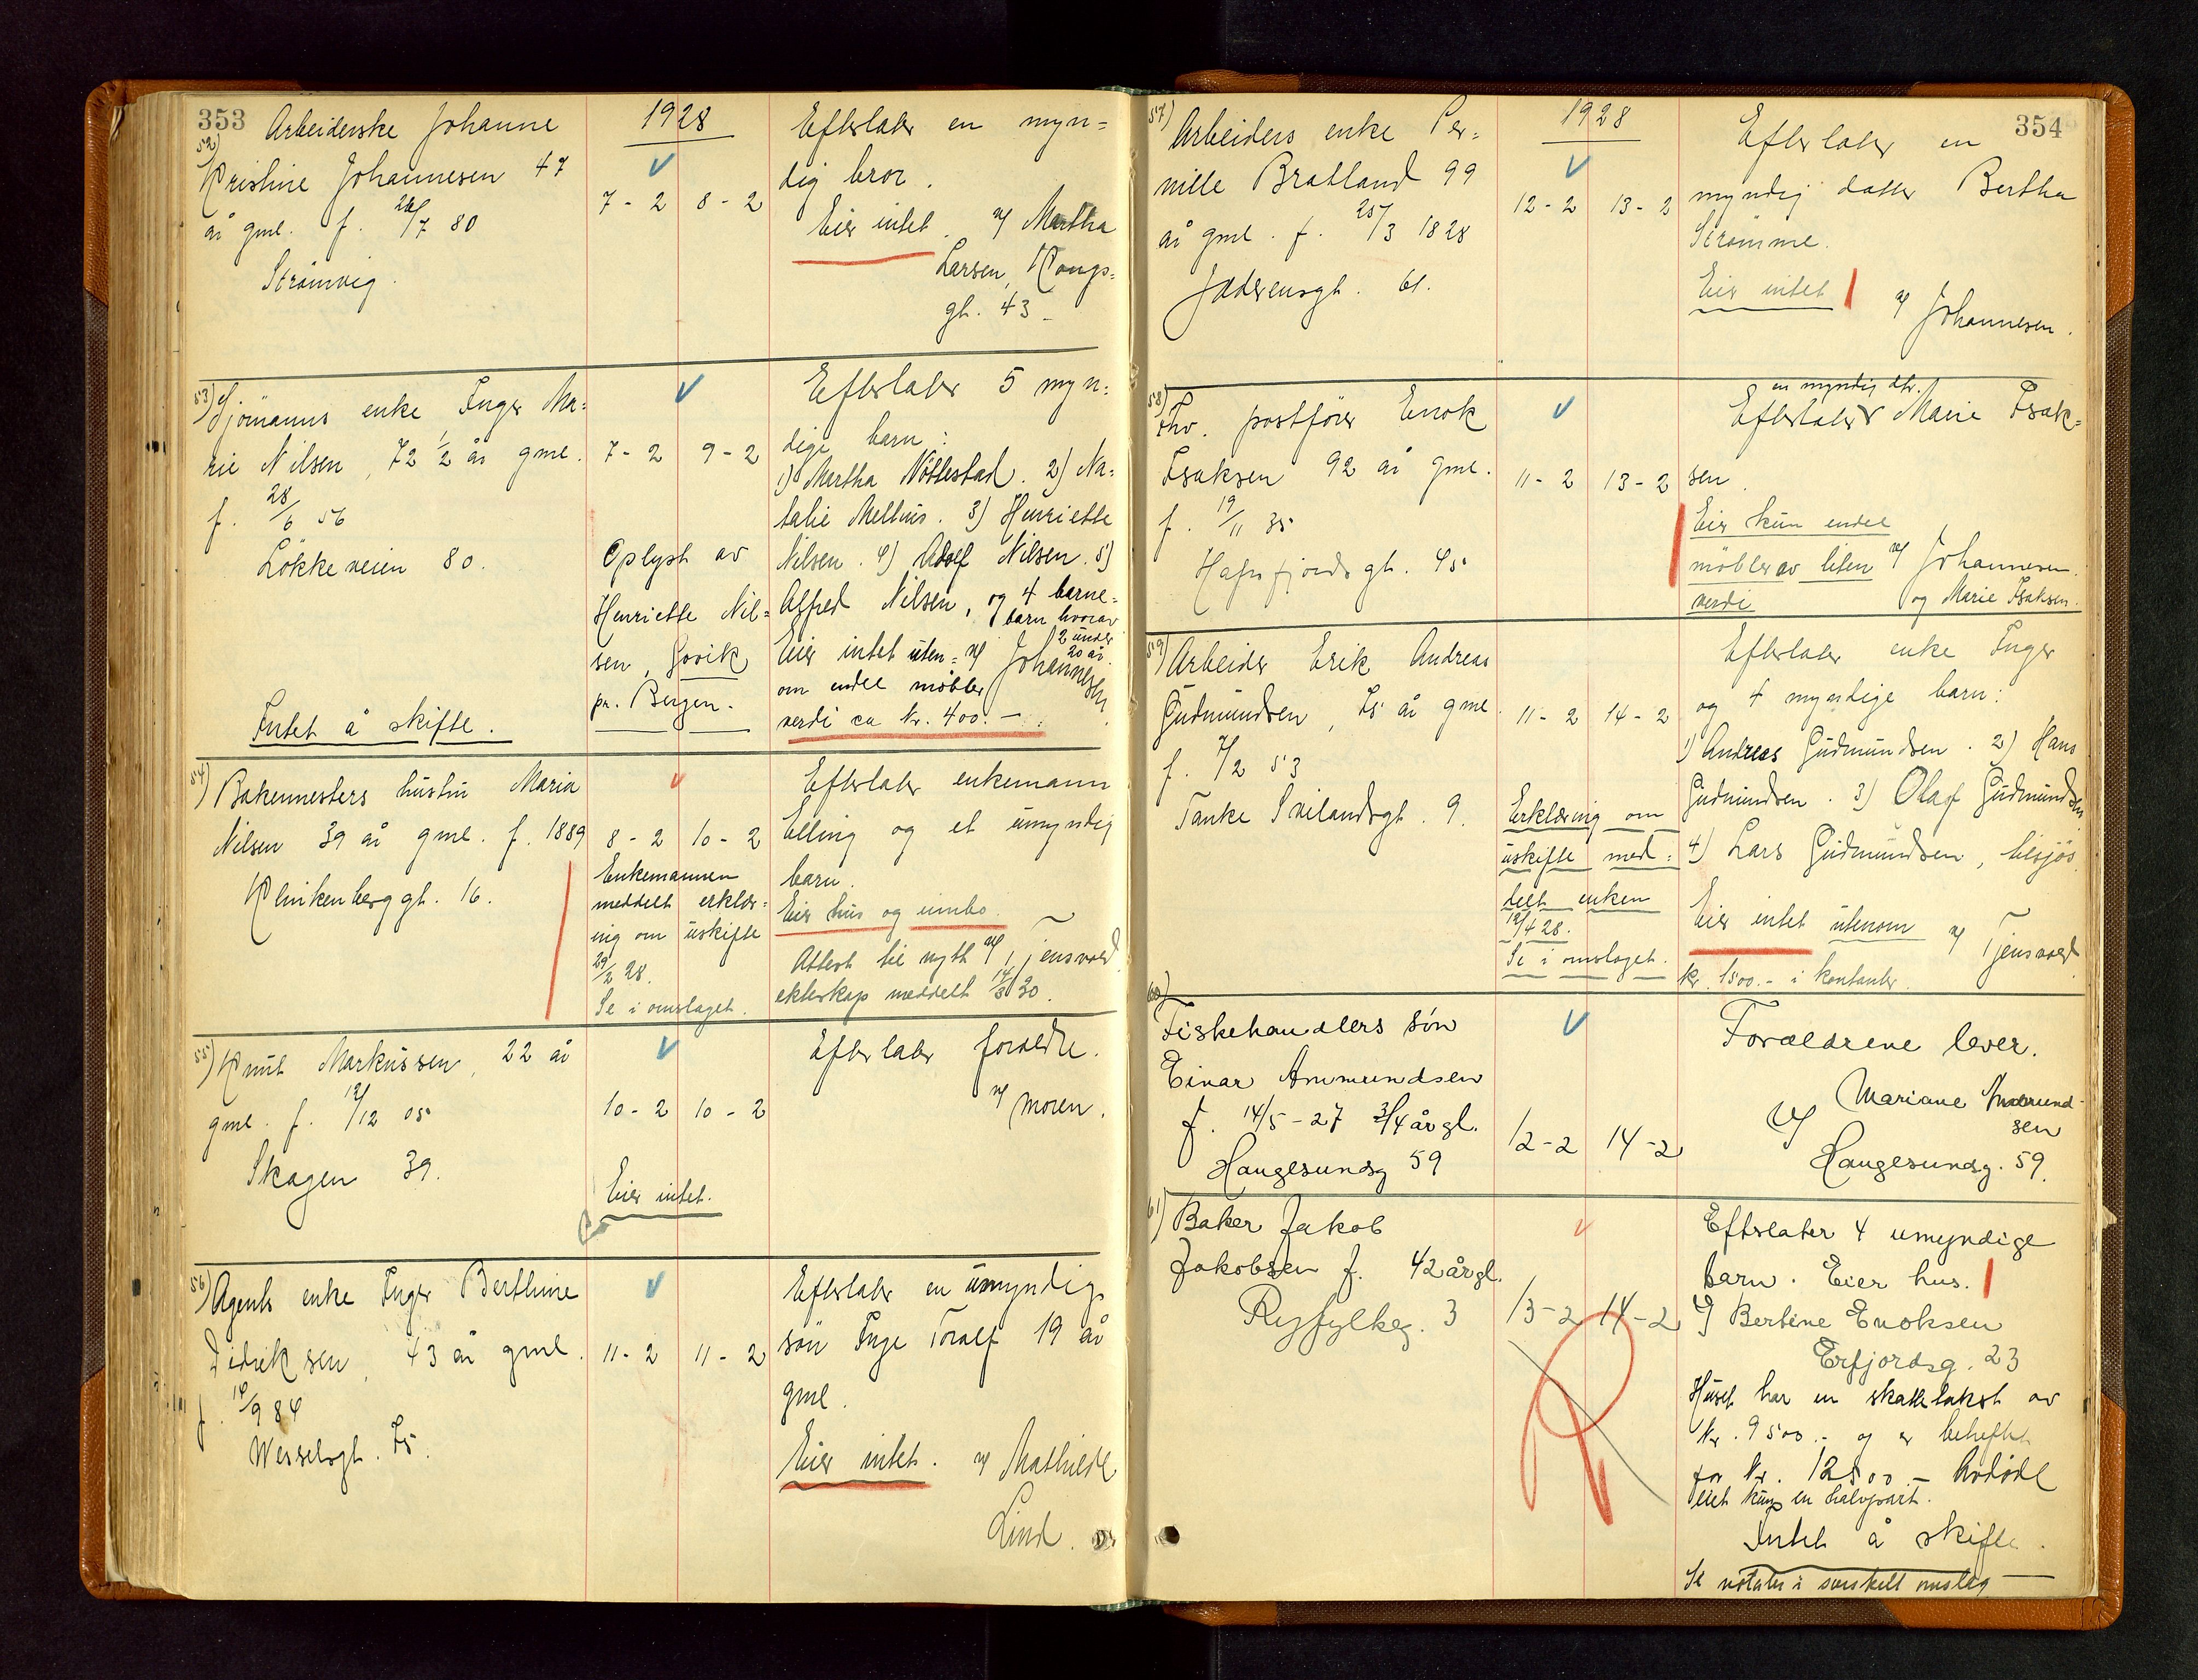 353
52) Arbeiderske Johanne
Kristine Johannesen 47
år gml. f. 26/7 80
Strømvig.
1928
7-2 8-2
Efterlater en myn=
dig bror.
Eier intet. v/ Martha
Larsen, Kongs=
gt. 43 -
53) Sjømanns enke Inger Ma=
rie Nilsen, 72 1/2 år gml.
f. 28/6 56
Løkkeveien 80.
Intet å skifte.
7-2 9-2
Oplyst av
Henriette Nil=
sen, Govik
pr. Bergen.
Efterlater 5 myn=
dige barn:
1) Martha Nøttestad. 2) Na=
talie Melhus. 3) Henriette
Nilsen. 4) Adolf Nilsen. 5)
Alfred Nilsen, og 4 barne=
barn hvorav
2 under
20 år.
Eier intet uten= v/ Johannesen
om endel møbler
verdi ca kr. 400.-
54) Bakermesters hustru Maria
Nilsen 39 år gml. f. 1889
Klinkenberggt. 16.
8-2 10-2
Enkemannen
meddelt erklær=
ing om uskifte
29/2 28.
Se i omslaget.
Efterlater enkemann
Elling og et umyndig
barn.
Eier hus og innbo.
v/ Tjensvold
Attest til nytt
ekteskap meddelt 14/3 30.
55) Knut Markussen, 22 år
gml. f. 12/12 05
Skagen 39.
10-2 10-2
Eier intet.
Efterlater foreldre.
v/ moren.
56) Agents enke Inger Berthine
Didriksen, 43 år gml.
f. 14/9 84
Wesselsgt. 75.
11-2 11-2
Efterlater en umyndig
søn Inge Toralf 19 år
gml.
Eier intet. v/ Mathilde
Lind.
354
57) Arbeiders enke Per=
nille Bratland 99
år gml. f. 25/3 1828
Jæderensgt. 61.
1928
12-2 13-2
Efterlater en
myndig datter Bertha
Strømme.
Eier intet
v/ Johannesen.
58) Fhv. postfører Enok
Isaksen 92 år gml.
f. 19/11 35
Hafrsfjordsgt. 45
11-2 13-2
en myndig dtr.
Efterlater Marie Isak=
sen.
Eier kun endel
møbler av liten v/ Johannesen.
verdi og Marie Isaksen.
59) Arbeider Erik Andreas
Gudmundsen, 75 år gml.
f. 7/2 53
Tanke Svilandsgt. 9.
11-2 14-2
Erklæring om
uskifte med=
delt enken
12/4 28.
Se i omslaget.
Efterlater enke Inger
og 4 myndige barn:
1) Andreas Gudmundsen. 2) Hans
Gudmundsen. 3) Olaf Gudmundsen
4) Lars Gudmundsen, tilsjøs.
Eier intet utenom v/ Tjensvold
kr. 1500.- i kontanter.
60)
Fiskehandlers søn
Einar Ammundsen
f. 14/5-27 3/4 år gl.
Haugesundsg 59
12-2 14-2
Forældrene lever.
v/ Mariane Ammund-
sen
Haugesundsg. 59.
61) Baker Jakob
Jakobsen f. 42 år gl.
Ryfylkeg. 3
13-2 14-2
Efterlater 4 umyndige
barn. Eier hus.
v/ Bertine Enoksen
Erfjordsg. 23
Huset har en skattetakst av
kr. 9500.- og er beheftet
for kr. 12500 - Avdøde
eiet kun en halvpart.
Intet å skifte.
Se notater i særskilt omslag